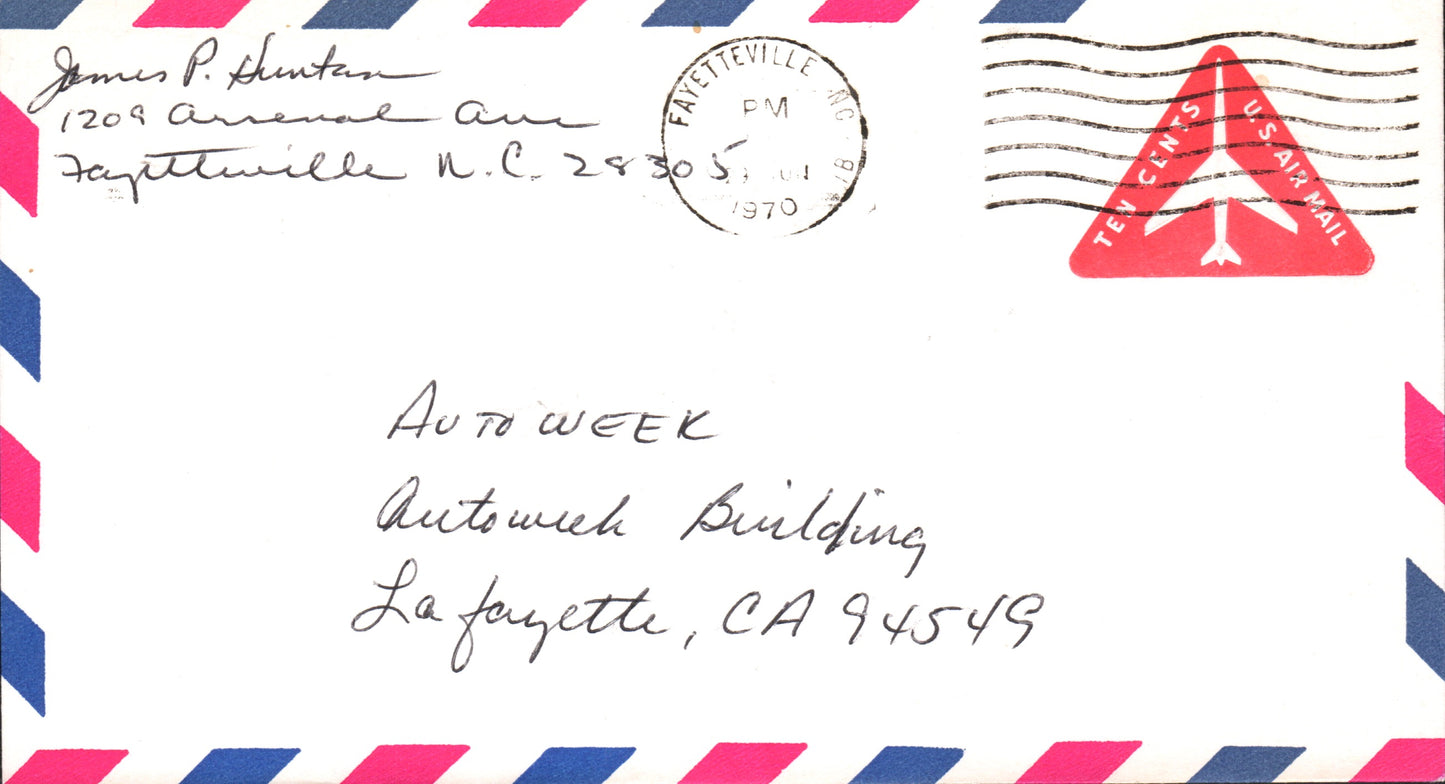 James P. Huntan
1209 Arsenal Ave
Fayetteville N.C. 28305
FAYETTEVILLE NC
PM
1970
TEN CENTS
U.S. AIR MAIL
AUTOWEEK
Autoweek Building
Lafayette, CA 94549